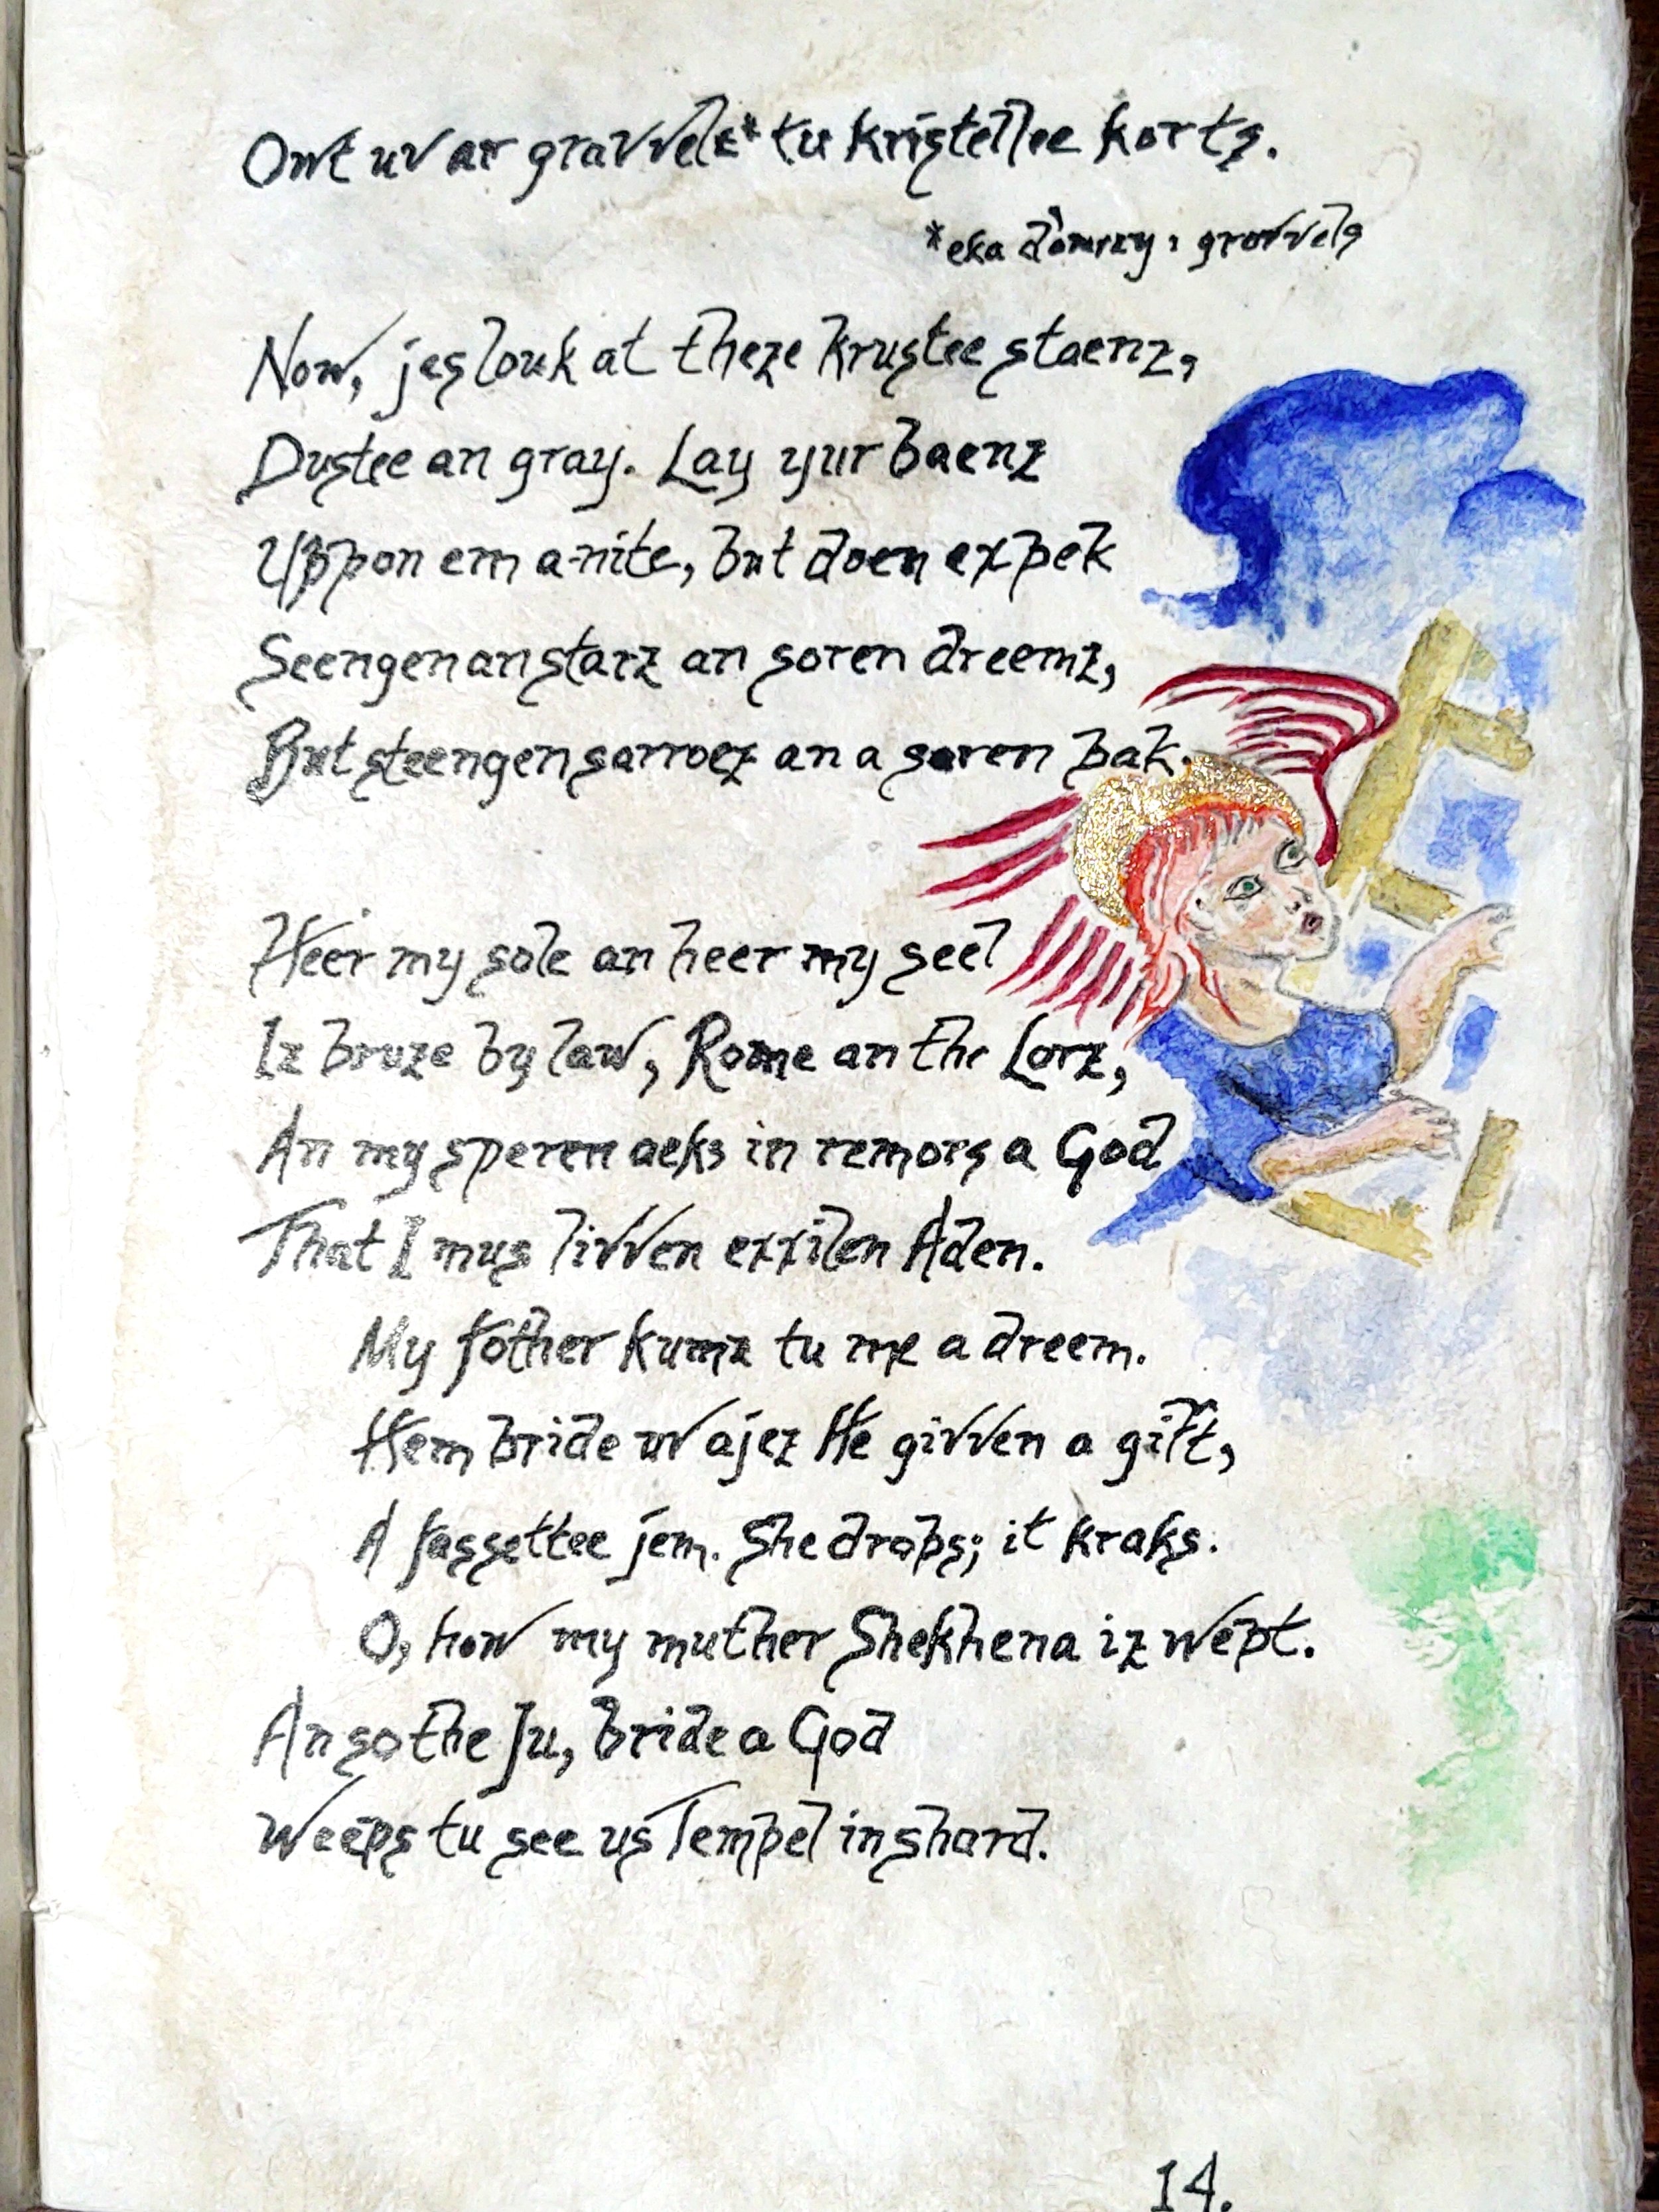 Owt uv ar gravvels* tu kristellee korts.
*eka : gravvels
Now, jes louk at theze krustee staenz,
Dustee an gray. Lay yur baenz
Uppon em a-nite, but doen expek
Seengen an starz an soren dreemz,
But steengen sarroez an a soren bak.
Heer my sole an heer my seel
Iz bruze by law, Rome an the Lorz,
An my speren aeks in remors a God
That I mus livven exxilen Aden.
My fother kumz tu me a dreem.
Hem bride uv ajez He givven a gift,
A fassettee jem. She drops; it kraks.
O, how my muther Shekhena iz wept.
An so the Ju, bride a God
Weeps tu see us Tempel in shard.
14.